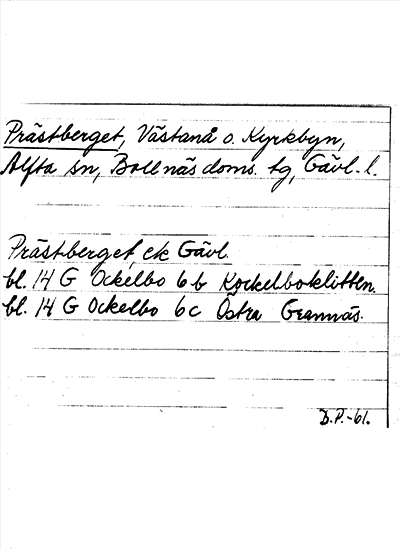 Prästberget, Västanå o. Kyrkbyn,
Alfta sn, Bollnäs doms. tg, Gävl. l.
Prästberget, ek Gävl.
bl. 14 G Ockelbo 6 b Kockelboklitten.
bl. 14 G Ockelbo 6 c Östra Grannäs.
D.P.-61.